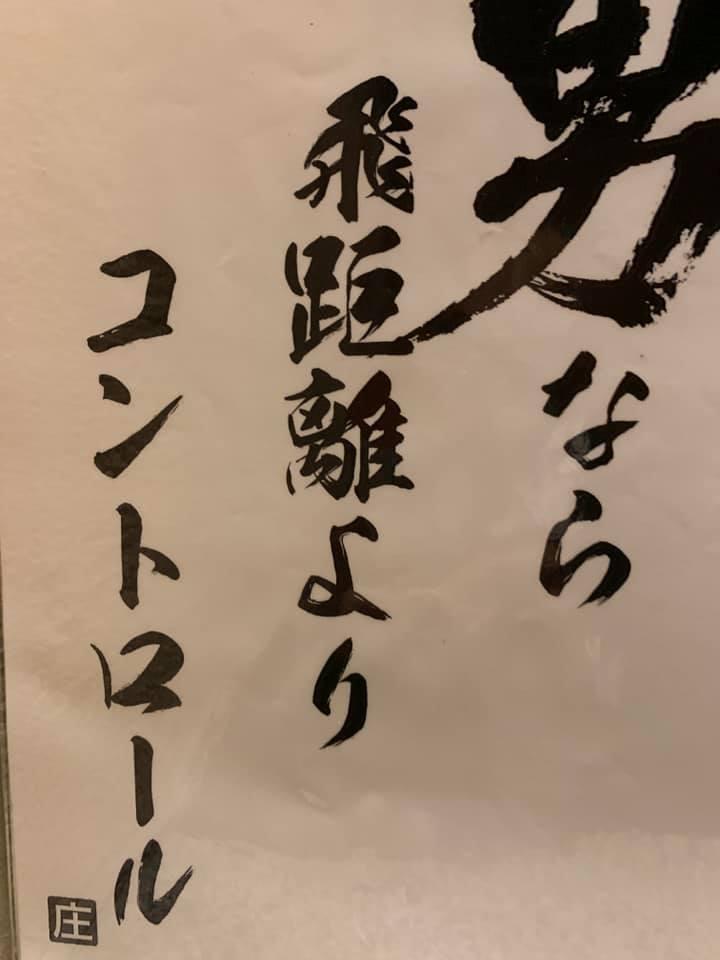 男なら
飛距離より
コントロール
庄